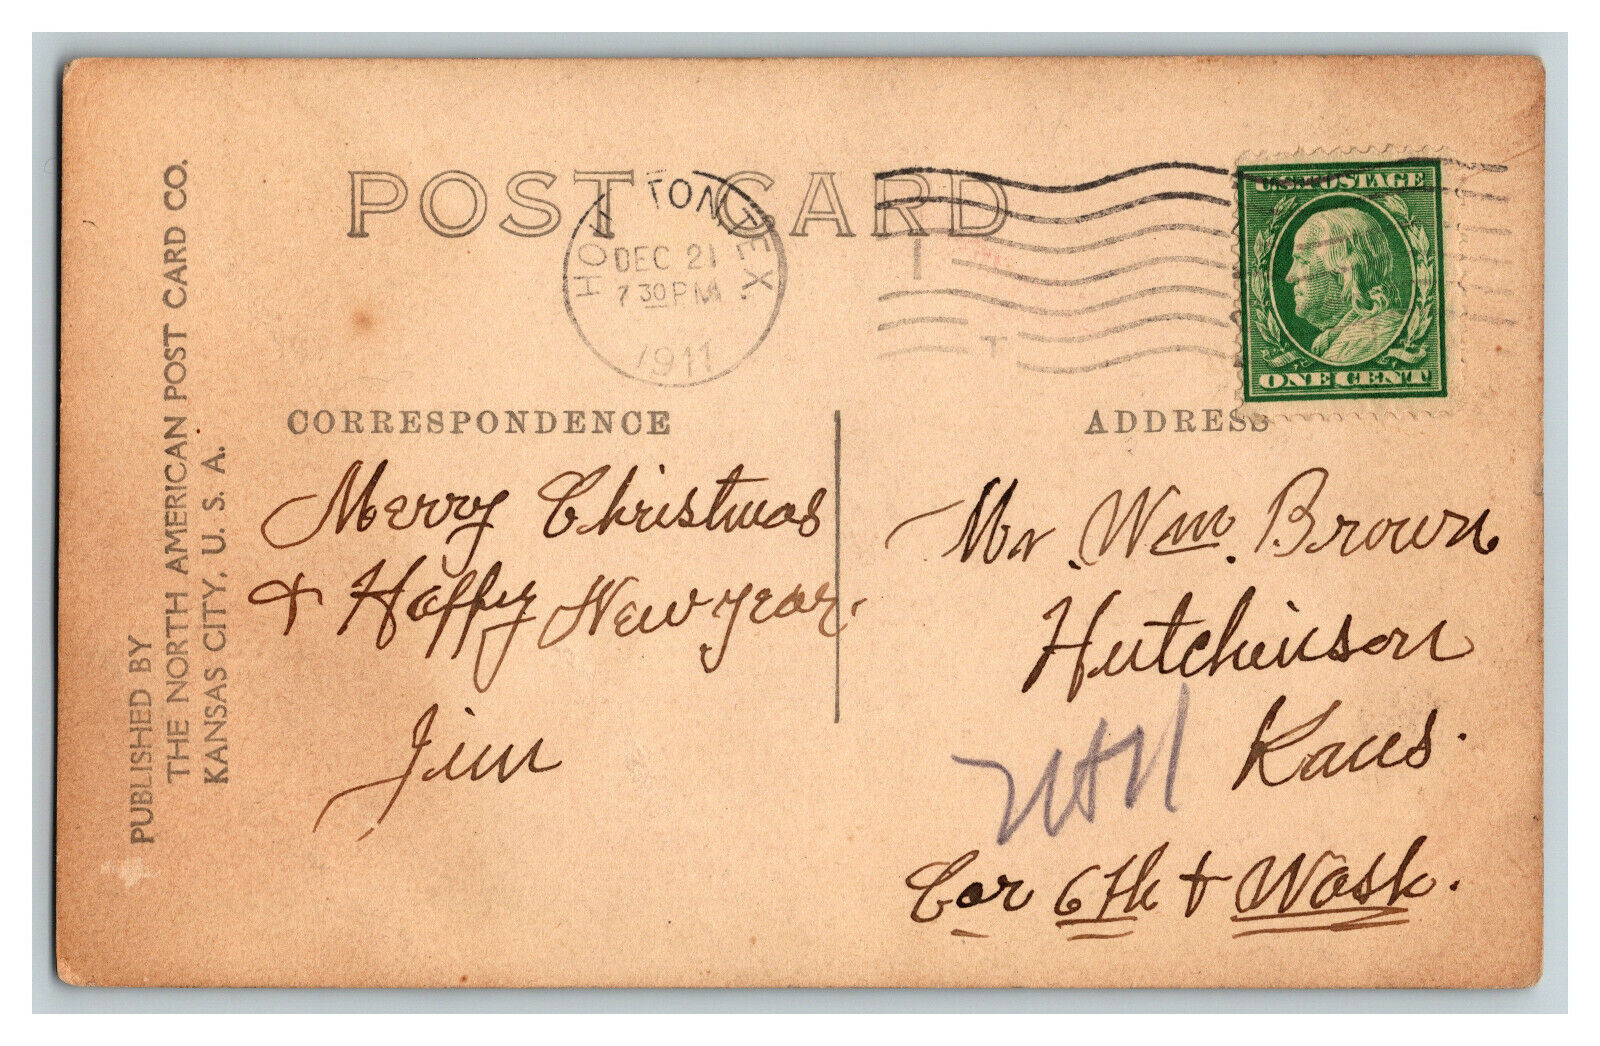 POST CARD
HOUSTON, TEX.
DEC 21
7 30 PM
1911
U.S. POSTAGE
ONE CENT
PUBLISHED BY
THE NORTH AMERICAN POST CARD CO.
KANSAS CITY, U. S. A.
CORRESPONDENCE
Merry Christmas
+ Happy New year.
Jim
ADDRESS
Mr. Wm. Brown
Hutchinson
Kans.
Cor 6th + Wash.